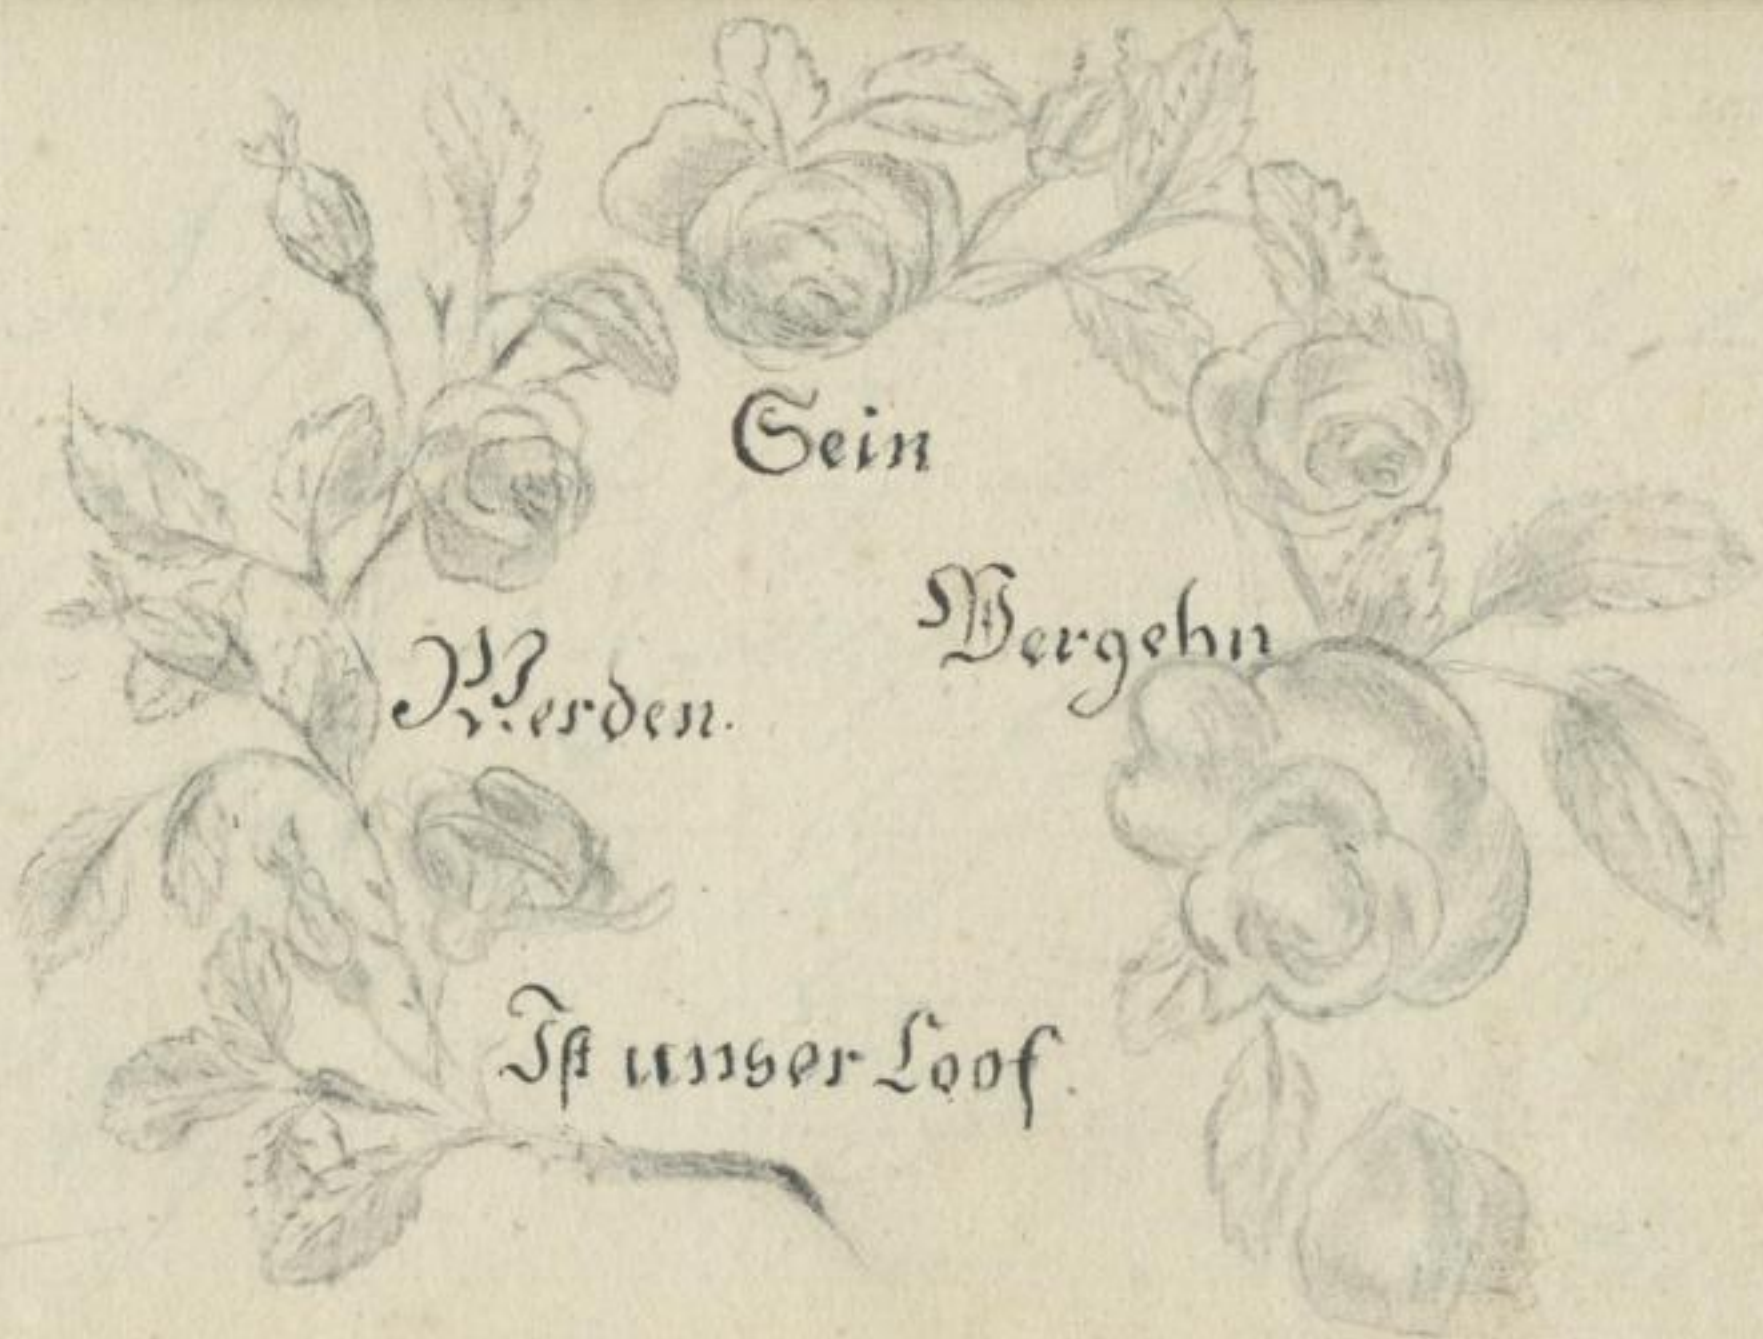 Sein
Vergehn
Werden.
Ist unser Loos.